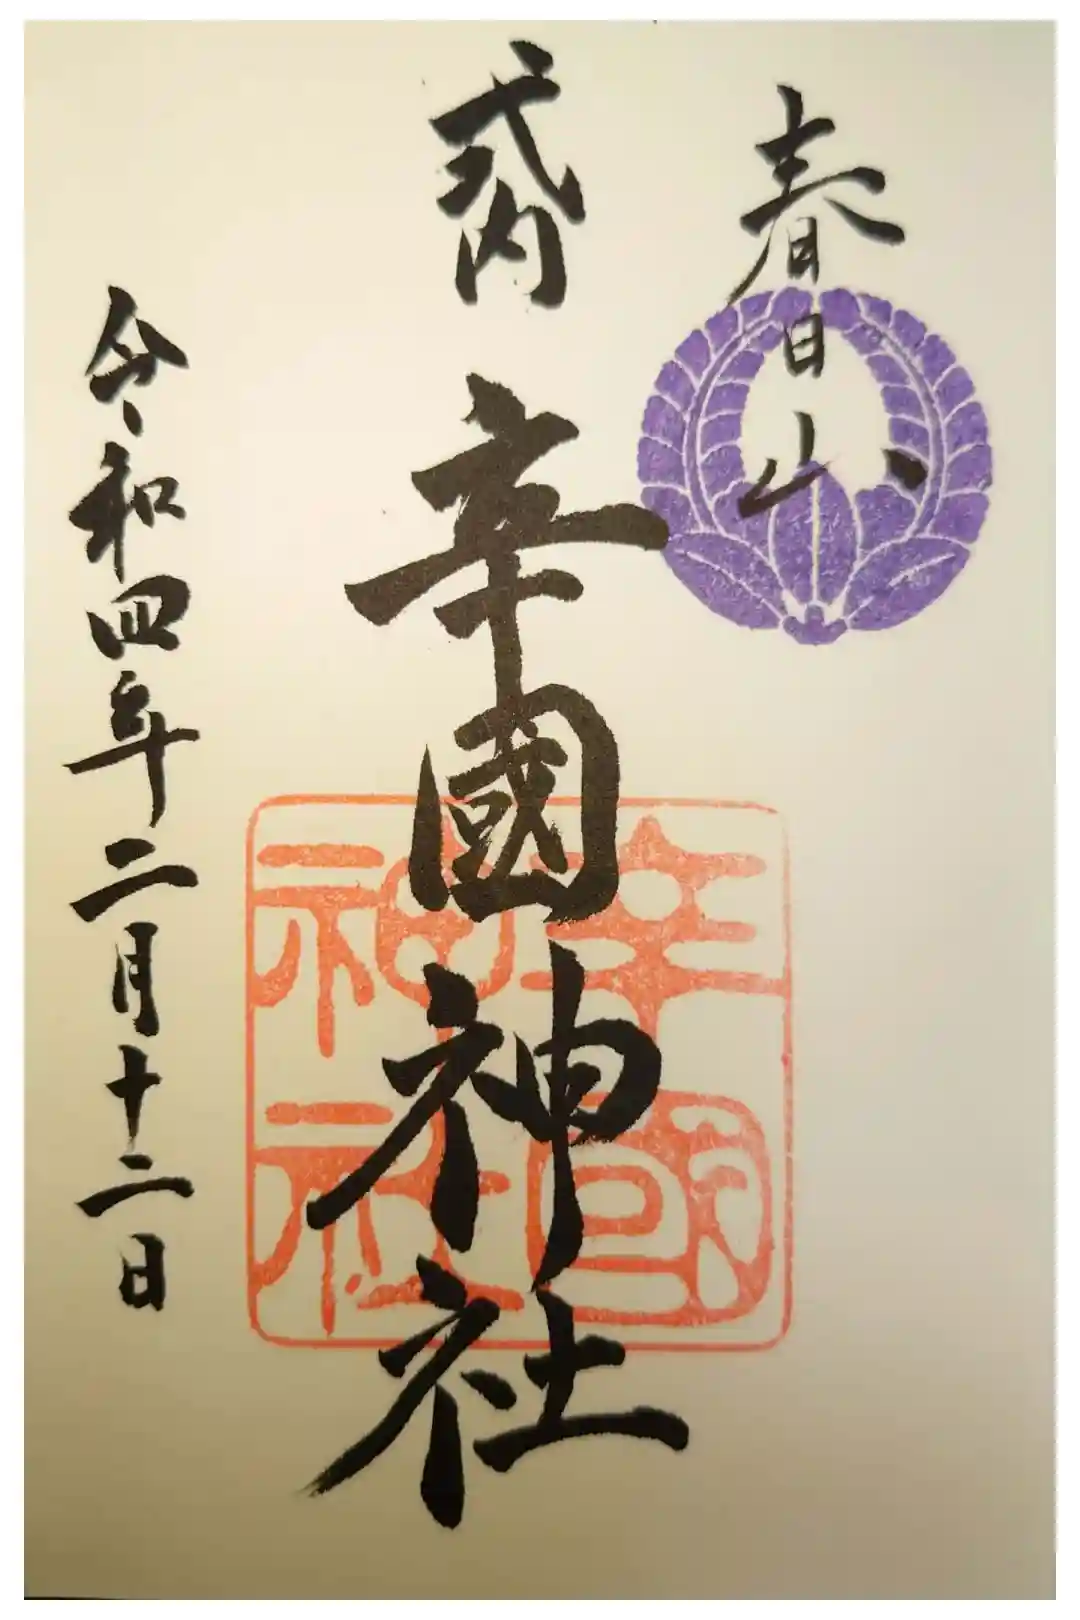 春日山
式内
辛國神社
令和四年二月十二日
辛國神社